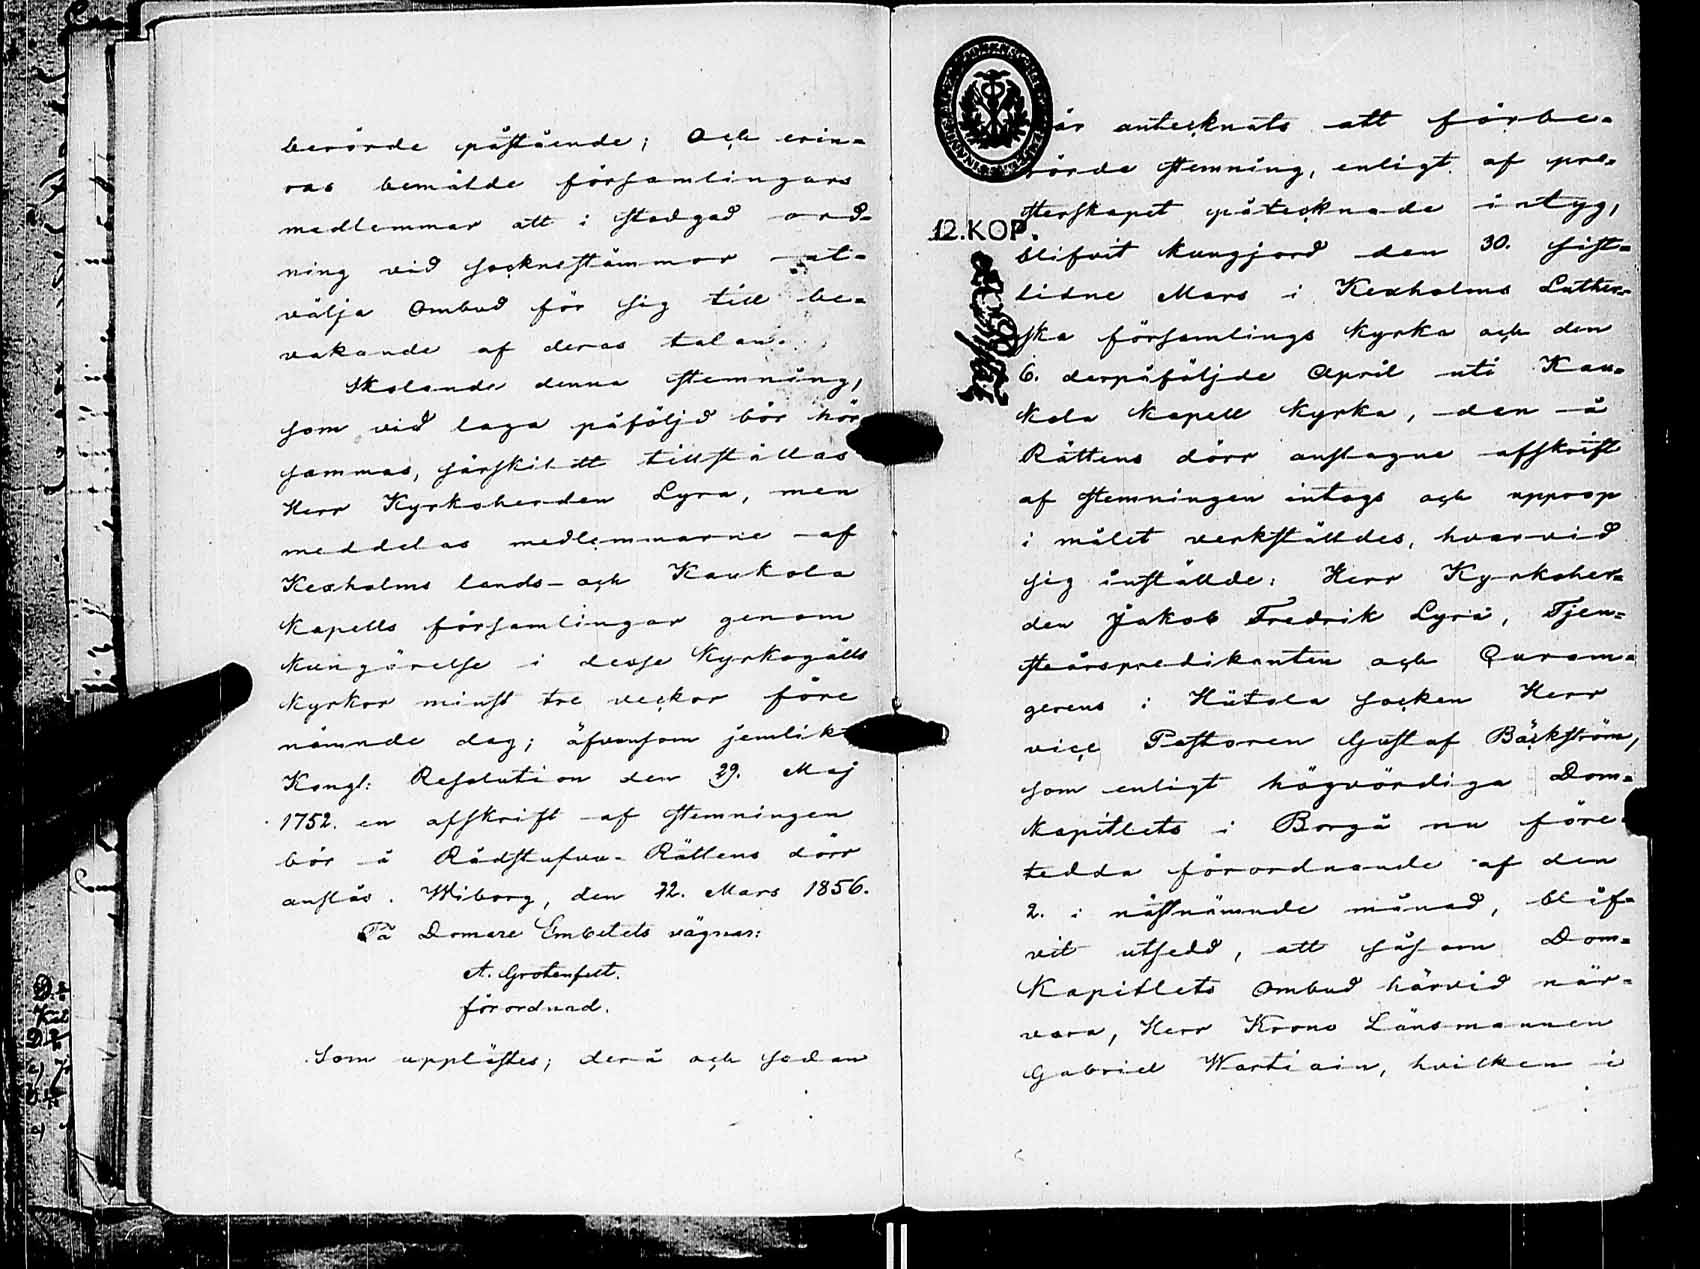 berörde påstående; Och erin-
ras bemälde församlingars
medlemmar att i stadgad ord-
ning vid socknestämmor ut-
välja Ombud för sig till be-
vakande af deras talan.
Skolande denna stemning,
som vid laga påföljd bör hör
sammas, särskilt tillställas
Herr Kyrkoherden Lyra, men
meddelas medlemmarne af
Kexholms lands- och Kaukola
Kapells församlingar genom
Kungörelse i desse Kyrkogälls
Kyrkor minst tre veckor före
nämnde dag; äfvensom jemlikt
Kongl: Resolution den 29. Maj
1752. en afskrift af stemningen
bör å Rådstufvu-Rättens dörr
anslås. Wiborg, den 22. Mars 1856.
På Domare Embetets vägnar:
A. Grotenfelt.
förordnad.
Som upplästes; derå och sedan
här antecknats att förbe-
rörde stemning, enligt af pre-
sterskapet påtecknade intyg,
12.KOP.
blifvit kungjord den 30. sist-
lidne Mars i Kexholms Luther-
ska församlings Kyrka och den
6. derpåföljde April uti Kau-
kola Kapell Kyrka, den å
Rättens dörr anslagne afskrift
af stemningen intogs och upprop
i målet verkställdes, hvarvid
sig inställde: Herr Kyrkoher-
den Jakob Fredrik Lyra, Tjen-
steårspredikanten och Curam-
gerens i Hiitola socken Herr
vice Pastoren Gustaf Bäckström,
som enligt högvördiga Dom-
kapitlets i Borgå nu före-
tedda förordnande af den
2. i nästnämnde månad, blif-
vit utsedd, att såsom Dom-
Kapitlets Ombud härvid när-
vara, Herr Krono Länsmannen
Gabriel Wartiain, hvilken i